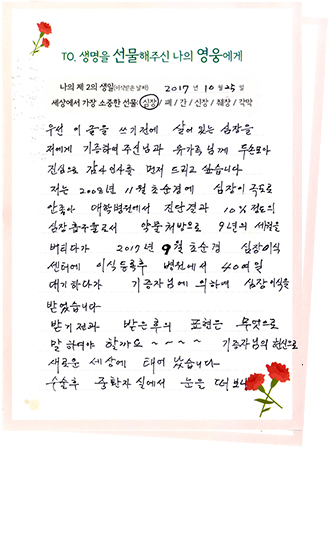 TO. 생명을 선물해주신 나의 영웅에게
나의 제 2의 생일(이식받은 날짜) 2017 년 10 월 25 일
세상에서 가장 소중한 선물 (심장 / 폐 / 간 / 신장 / 췌장 / 각막
우선 이 글을 쓰기전에 살어있는 심장을
저에게 기증하여 주신님과 유가족님께 두손모아
진심으로 감사인사를 먼저 드리고 싶습니다
저는 2008년 11월 초순경에 심장이 극도로
안좋아 대학병원에서 진단결과 10% 정도의
심장 움직으로서 약물처방으로 9년의 세월을
버티다가 2017년 9월 초순경 심장이식
센터에 이식등록후 병원에서 40여일
대기하다가 기증자님에 의하여 심장이식을
받었습니다
받기전과 받은후의 표현은 무엇으로
말하여야 할까요 ~ ~ ~ ~ 기증자님의 헌신으로
새로운 세상에 태여 났습니다
수술후 중환자실에서 눈을 떠보니